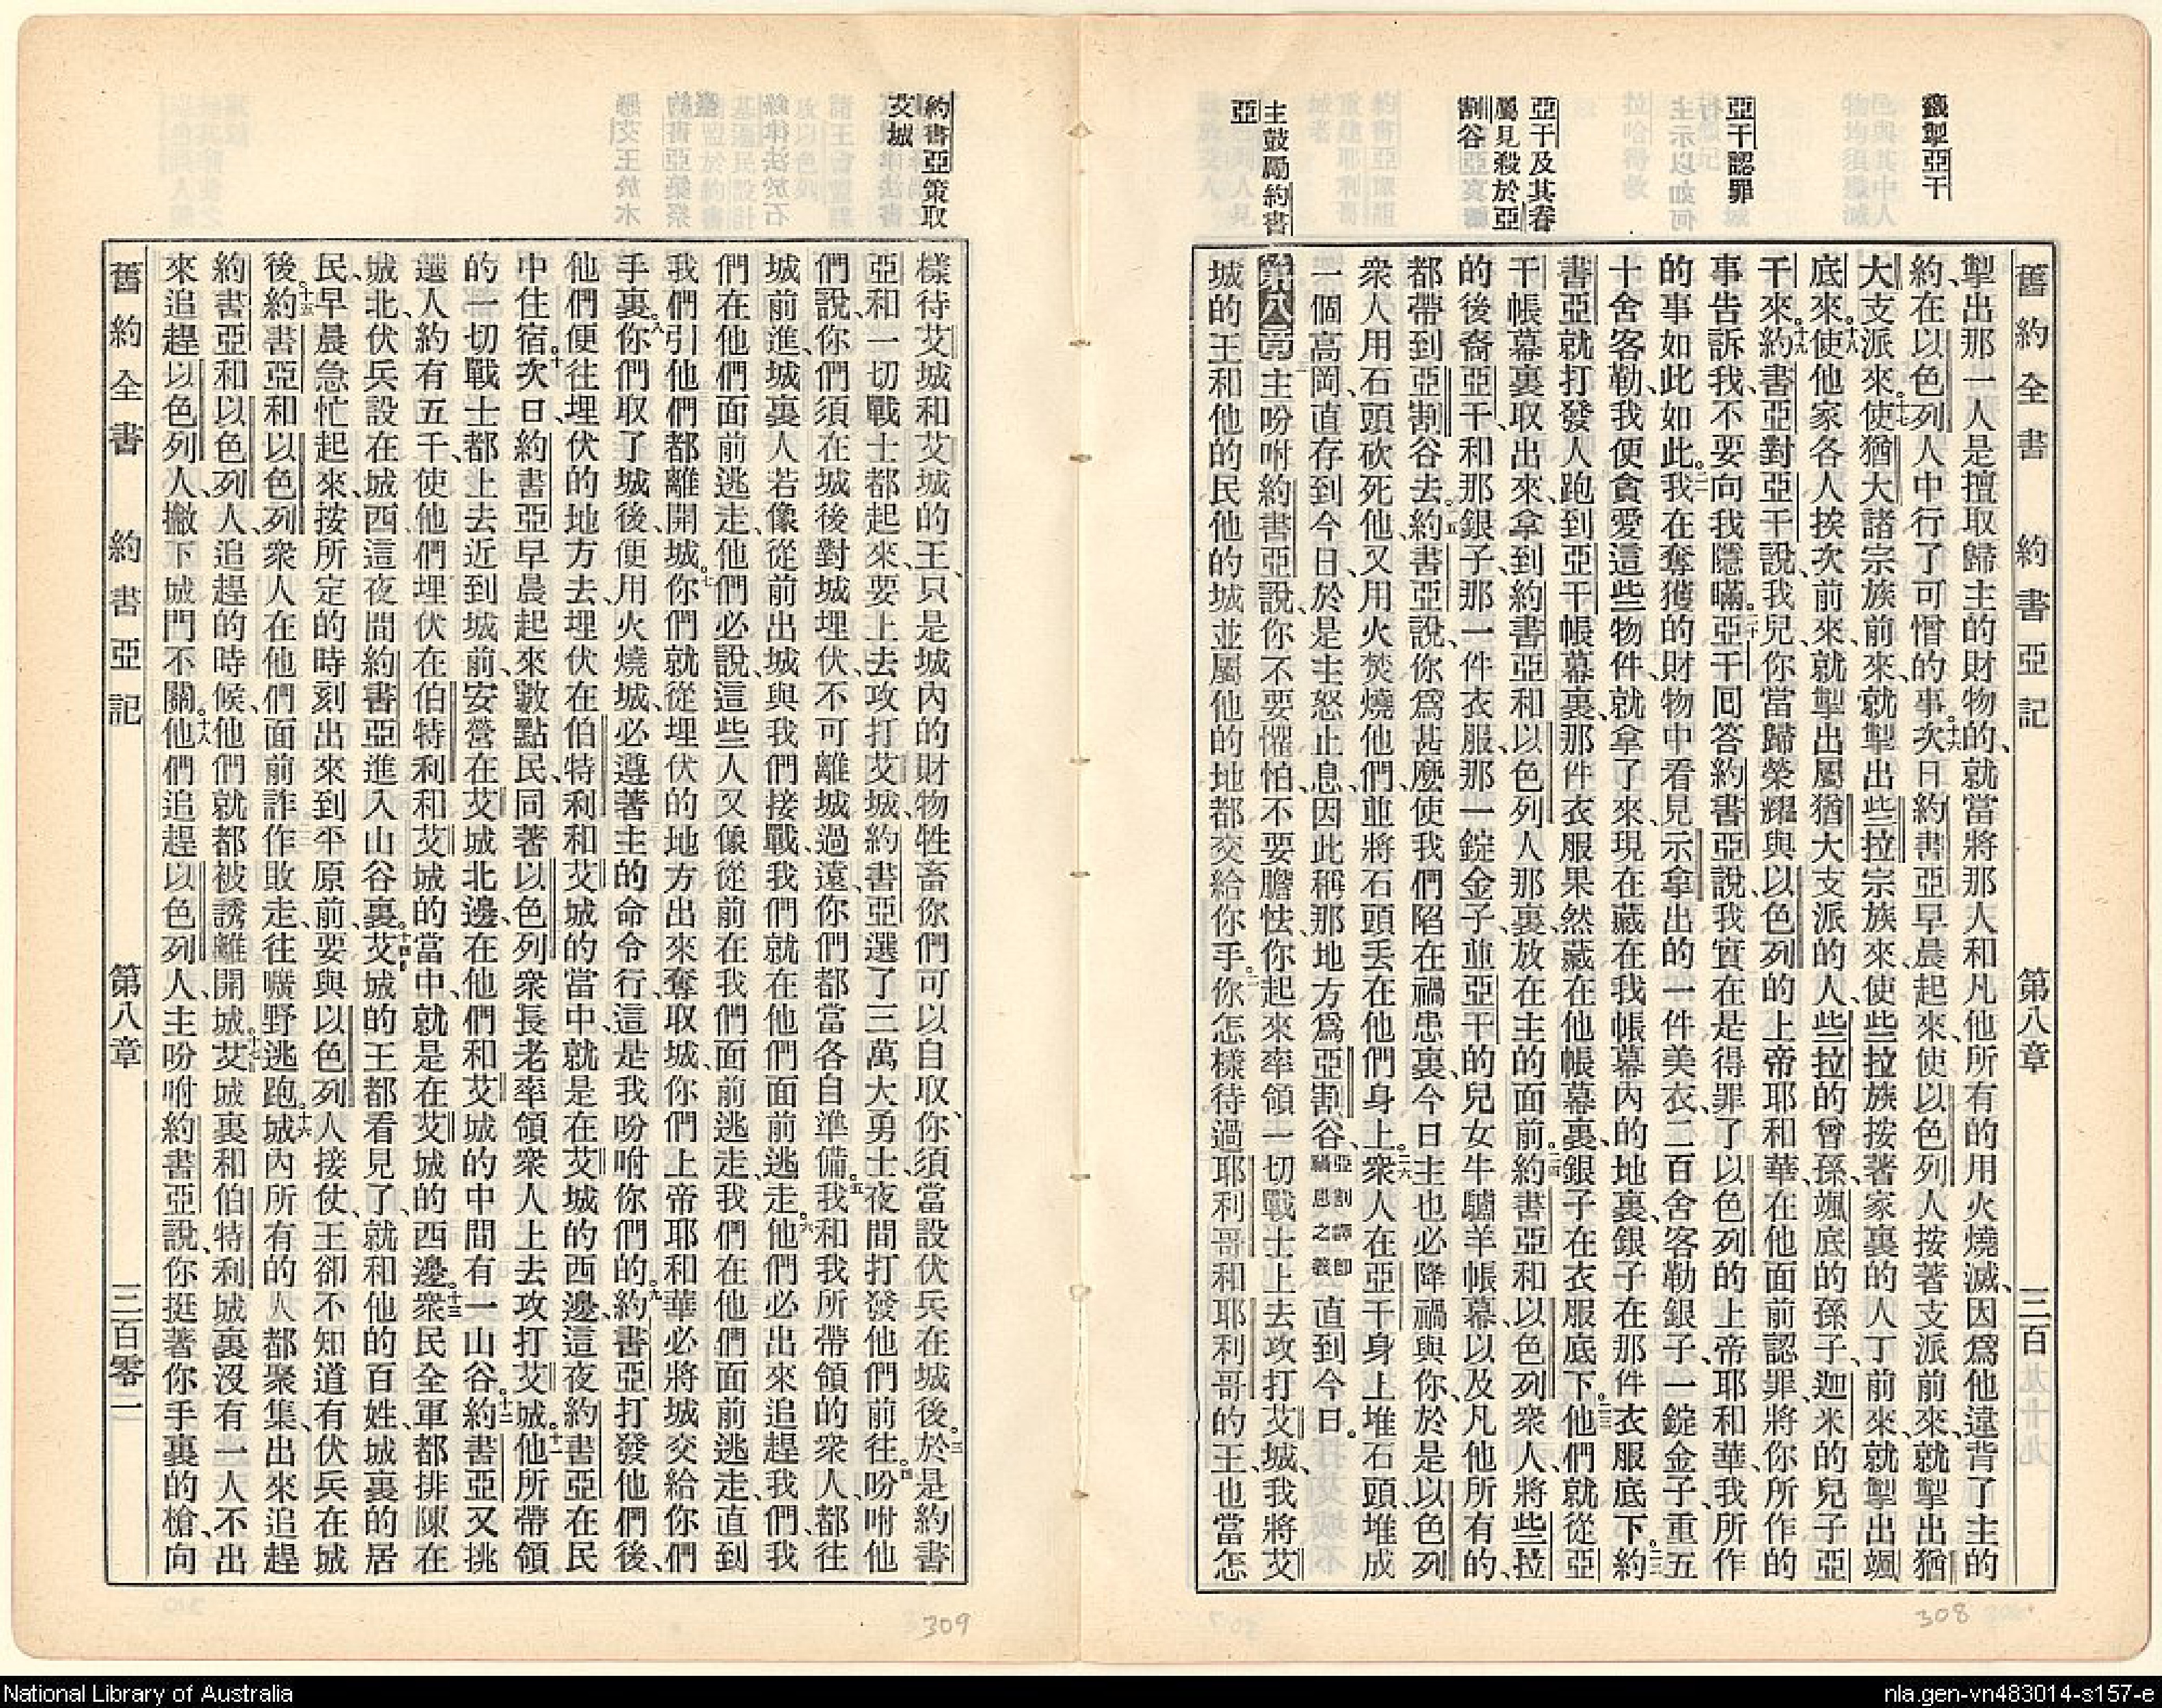 籤掣亞干
亞干認罪
亞干及其眷
屬見殺於亞
割谷
主鼓勵約書
亞
舊約全書 約書亞記 第八章 三百
掣出那一人是擅取歸主的財物的、就當將那人和凡他所有的用火燒滅、因爲他違背了主的
約、在以色列人中行了可憎的事。十六次日約書亞早晨起來、使以色列人按著支派前來、就掣出猶
大支派來。十七使猶大諸宗族前來、就掣出些拉宗族來、使些拉族按著家裏的人丁前來、就掣出颯
底來。十八使他家各人挨次前來、就掣出屬猶大支派的人些拉的曾孫、颯底的孫子、迦米的兒子亞
干來。十九約書亞對亞干說、我兒、你當歸榮耀與以色列的上帝耶和華、在他面前認罪、將你所作的
事告訴我、不要向我隱瞞。二十亞干囘答約書亞說、我實在是得罪了以色列的上帝耶和華、我所作
的事如此如此。二一我在奪獲的財物中看見示拿出的一件美衣、二百舍客勒銀子、一錠金子、重五
十舍客勒、我便貪愛這些物件、就拿了來、現在藏在我帳幕內的地裏、銀子在那件衣服底下。二二約
書亞就打發人跑到亞干帳幕裏、那件衣服果然藏在他帳幕裏、銀子在衣服底下。二三他們就從亞
干帳幕裏取出來、拿到約書亞和以色列人那裏、放在主的面前。二四約書亞和以色列衆人將些拉
的後裔亞干、和那銀子、那一件衣服、那一錠金子、並亞干的兒女牛驢羊帳幕、以及凡他所有的、
都帶到亞割谷去。二五約書亞說、你爲甚麼使我們陷在禍患裏、今日主也必降禍與你、於是以色列
衆人用石頭砍死他、又用火焚燒他們、並將石頭丟在他們身上。二六衆人在亞干身上堆石頭、堆成
一個高岡、直存到今日、於是主怒止息、因此稱那地方爲亞割谷、亞割譯卽禍患之義直到今日。
第八章 一主吩咐約書亞說、你不要懼怕、不要膽怯、你起來率領一切戰士上去攻打艾城、我將艾
城的王和他的民他的城並屬他的地都交給你手。二你怎樣待過耶利哥和耶利哥的王、也當怎
308
約書亞策取
艾城
樣待艾城和艾城的王、只是城內的財物牲畜你們可以自取、你須當設伏兵在城後。三於是約書
亞和一切戰士都起來、要上去攻打艾城、約書亞選了三萬大勇士、夜間打發他們前往。四吩咐他
們說、你們須在城後對城埋伏、不可離城過遠、你們都當各自準備。五我和我所帶領的衆人、都往
城前進、城裏人若像從前出城與我們接戰、我們就在他們面前逃走。六他們必出來追趕我們、我
們在他們面前逃走、他們必說、這些人又像從前在我們面前逃走、我們在他們面前逃走、直到
我們引他們都離開城。七你們就從埋伏的地方出來奪取城、你們上帝耶和華必將城交給你們
手裏。八你們取了城後、便用火燒城、必遵著主的命令行、這是我吩咐你們的。九約書亞打發他們後、
他們便往埋伏的地方去、埋伏在伯特利和艾城的當中、就是在艾城的西邊、這夜約書亞在民
中住宿。十次日約書亞早晨起來、數點民、同著以色列衆長老率領衆人上去攻打艾城。十一他所帶領
的一切戰士都上去、近到城前、安營在艾城北邊、在他們和艾城的中間有一山谷。十二約書亞又挑
選人約有五千、使他們埋伏在伯特利和艾城的當中、就是在艾城的西邊。十三衆民全軍都排陳在
城北、伏兵設在城西、這夜間約書亞進入山谷裏。十四艾城的王都看見了、就和他的百姓、城裏的居
民、早晨急忙起來、按所定的時刻出來到平原前、要與以色列人接仗、王卻不知道有伏兵在城
後。十五約書亞和以色列衆人在他們面前詐作敗走、往曠野逃跑。十六城內所有的人都聚集出來追趕
約書亞和以色列人、追趕的時候、他們就都被誘離開城。十七艾城裏和伯特利城裏沒有一人不出
來追趕以色列人、撇下城門不關。十八他們追趕以色列人、主吩咐約書亞說、你挺著你手裏的槍、向
舊約全書 約書亞記 第八章 三百零二
309
National Library of Australia
nla.gen-vn483014-s157-e